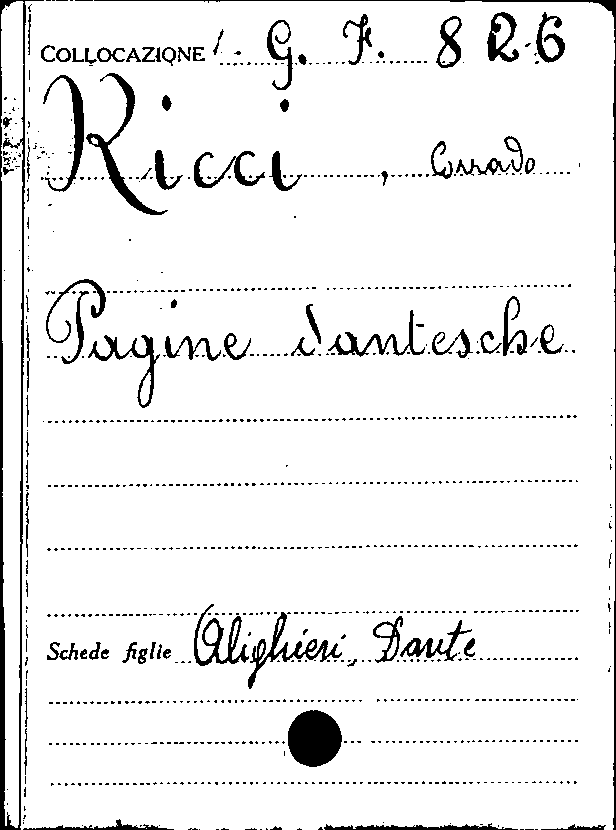 COLLOCAZIONE 1. G. F. 826
Ricci, Corrado
Pagine dantesche
Schede figlie Alighieri, Dante